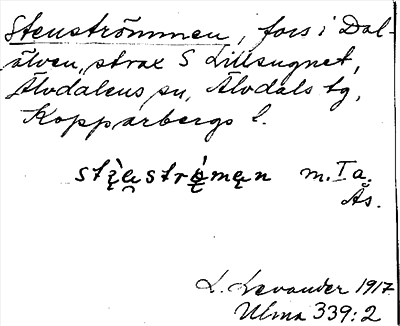 Stenströmmen, fors i Dal-
älven, strax S Lillsugnet,
Älvdalens sn, Älvdals tg,
Kopparbergs l.
m. I a.
Ås.
L. Levander 1917
Ulma 339:2